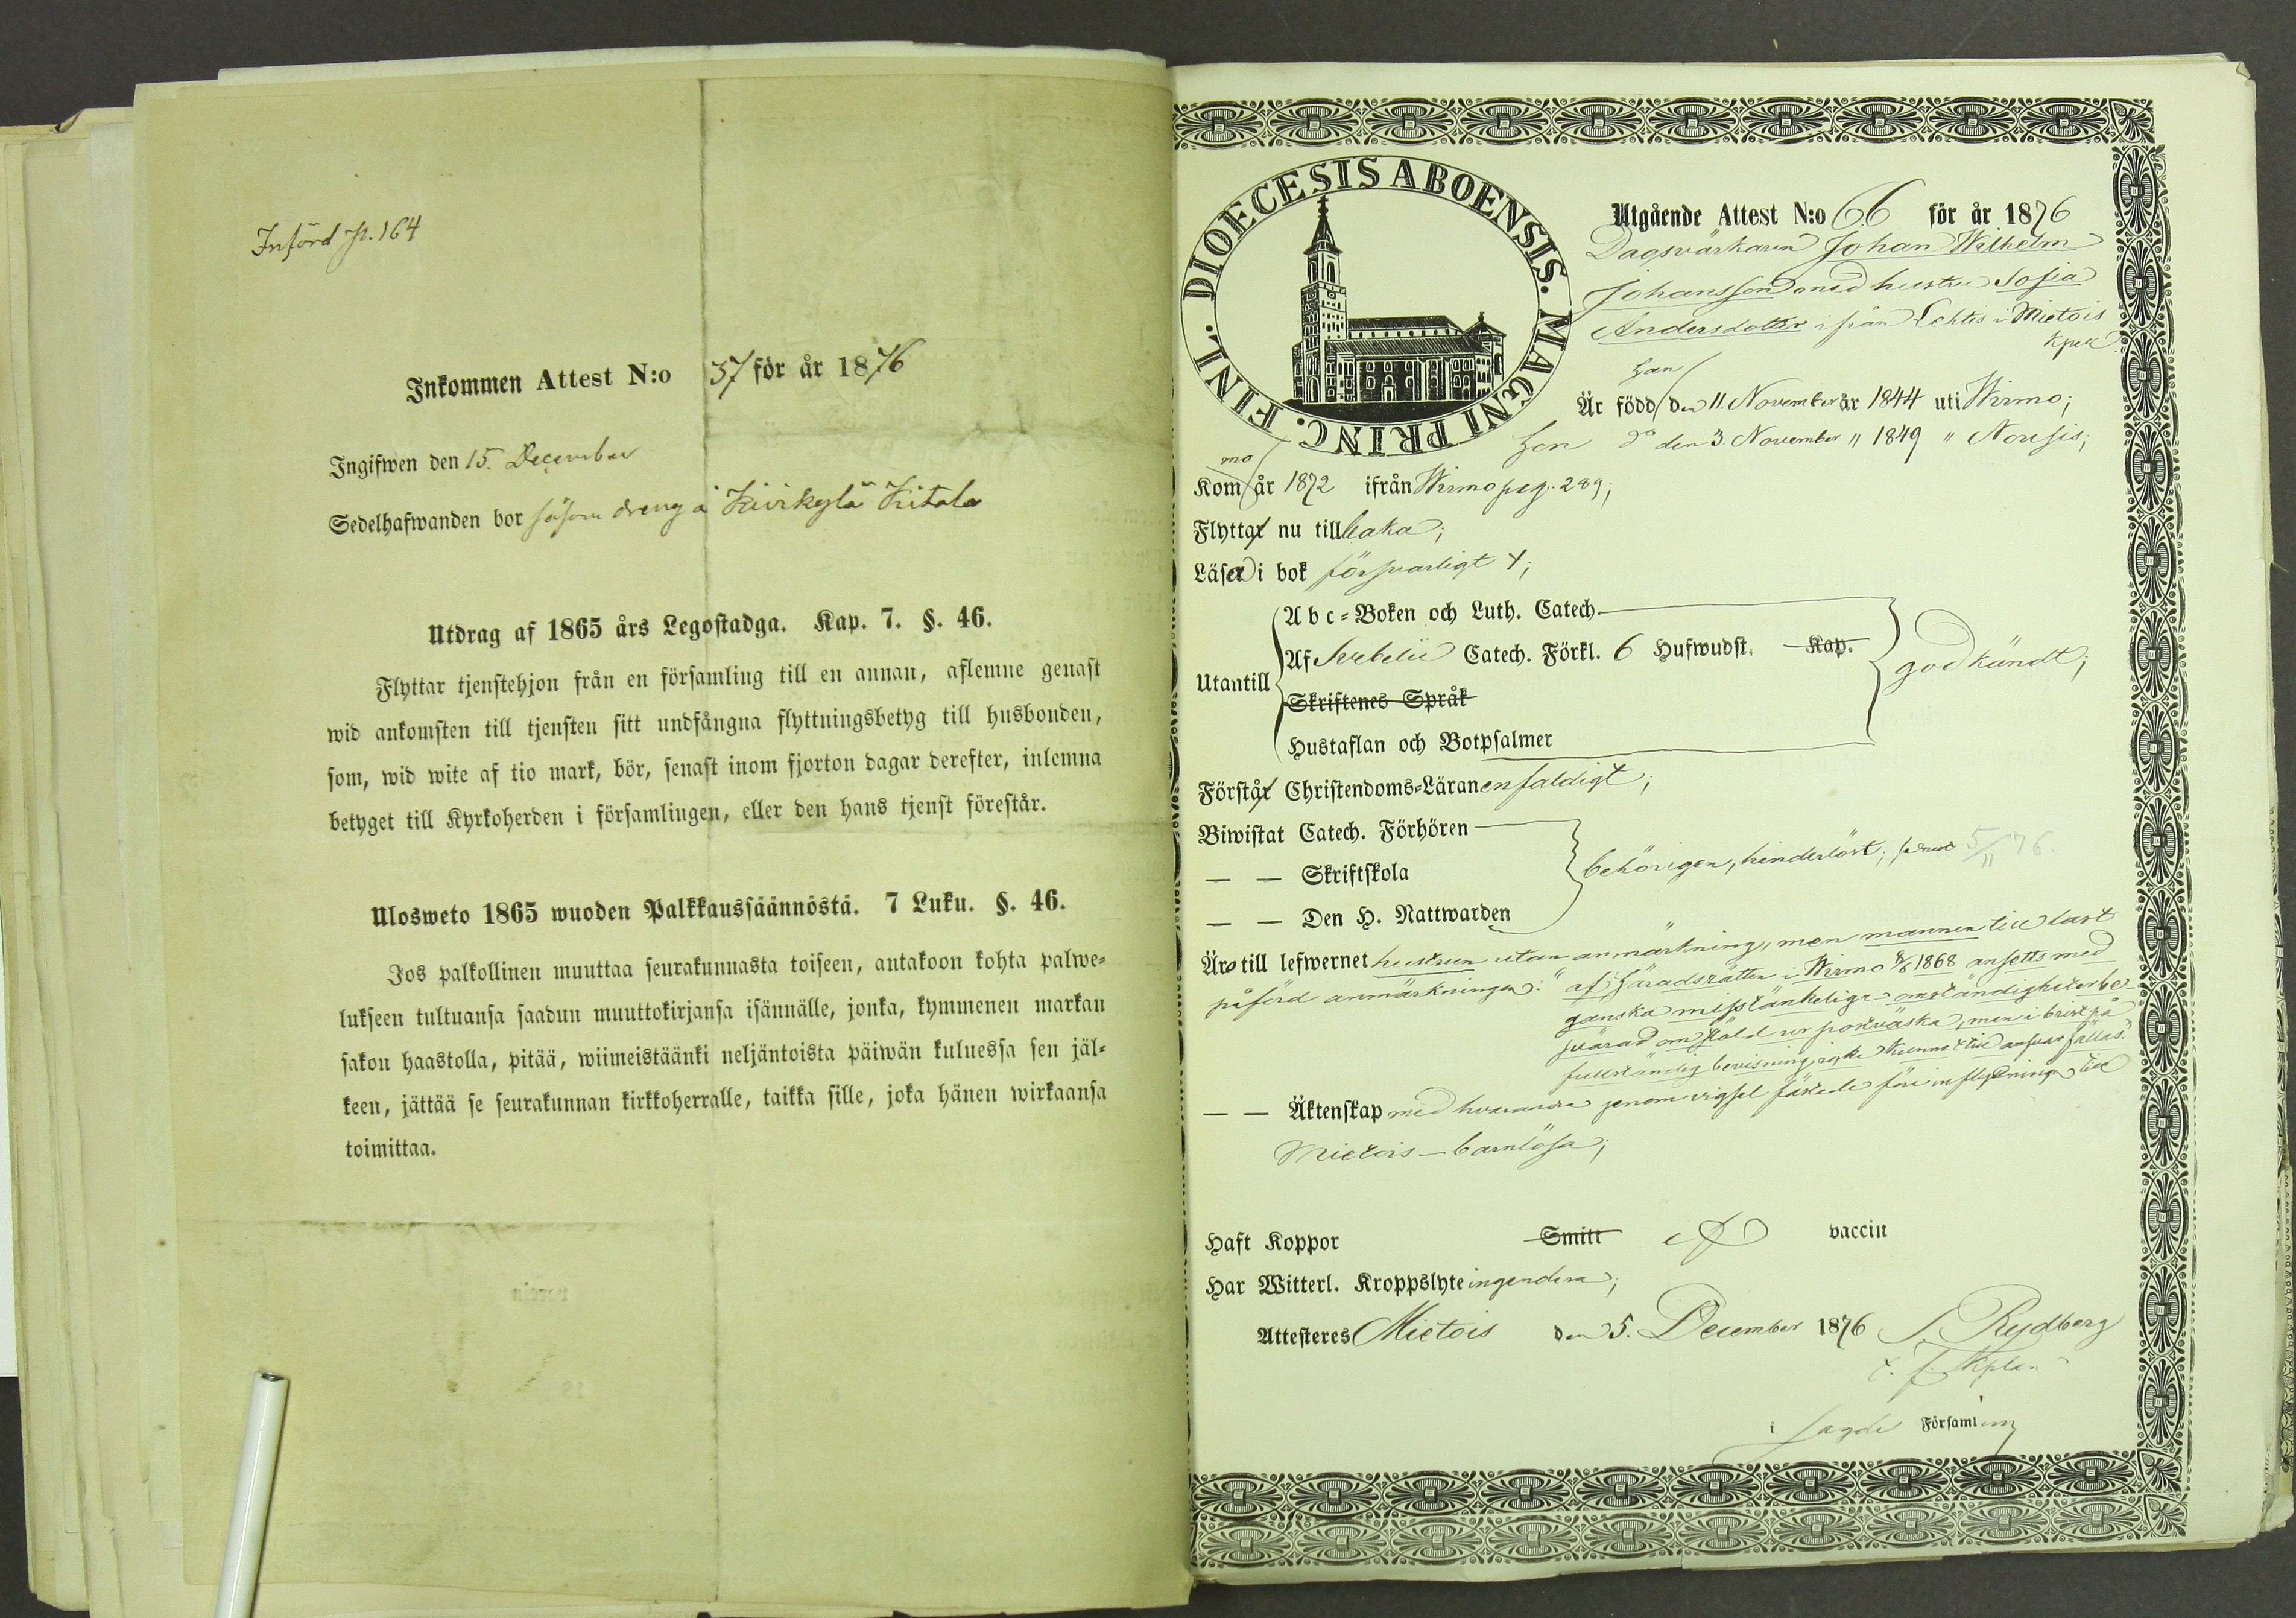 Införd p. 164
Inkommen Attest N:o 37 för år 1876
Ingifwen den 15. December
Sedelhafwanden bor såsom dreng å Kivikylä
Utdrag af 1865 års Legostadga. Kap. 7. §. 46.
Flyttar tjenstehjon från en församling till en annan, aflemne genast
wid ankomsten till tjensten sitt undfångna flyttningsbetyg till husbonden,
som, wid wite af tio mark, bör, senast inom fjorton dagar derefter, inlemna
betyget till Kyrkoherden i församlingen, eller den hans tjenst förestår.
Ulosweto 1865 wuoden Palkkaussäännöstä. 7 Luku. §. 46.
Jos palkollinen muuttaa seurakunnasta toiseen, antakoon kohta palwe=
lukseen tultuansa saadun muuttokirjansa isännälle, jonka, kymmenen markan
sakon haastolla, pitää, wiimeistäänki neljäntoista päiwän kuluessa sen jäl=
keen, jättää se seurakunnan kirkkoherralle, taikka sille, joka hänen wirkaansa
toimittaa.
DIOECESIS ABOENSIS. MAGNI PRINC. FINL.
Utgående Attest N:o 66 för år 1876
Dagsvärkaren Johan Wilhelm
Johansson med hustru Sofia
Andersdotter ifrån Lehtis i Mietois
kpell
han
Är född den 11. November år 1844 uti Wirmo;
hon d:o den 3. November " 1849 " Nousis;
mo
Kom år 1872 ifrån Wirmo pag. 289;
Flyttar nu till
Läsa i bok försvarligt
Utantill
A b c=Boken och Luth. Catech.
Af Svebelii Catech. Förkl. 6 Hufwudst. Kap.
godkändt;
Skriftenes Språk
Hustaflan och Botpsalmer
Förstår Christendoms=Läran enfaldigt;
Biwistat Catech. Förhören
— — Skriftskola
behörigen, hinderlöst; senast 5/11 76.
— — Den H. Nattwarden
Äro till lefwernet hustrun utan anmärkning, men mannen till last
påförd anmärkningen: "af Häradsrätten i Wirmo 1868 ansetts med
ganska misstänkeliga omständigheter be-
svärad om stöld ur postväska, men i brist på
fullständig bevisning icke kunnat till ansvar fällas."
— — Äktenskap med hvarandra genom vigsel före inflyttningen till
Mietois — barnlösa;
Haft Koppor Smitt vaccin
Har Witterl. Kroppslyte ingendera;
Attesteres Mietois den 5. December 1876 Rydberg
i sagde Församling